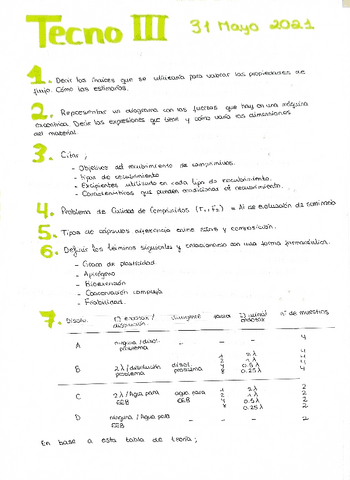 Tecno III 31 Mayo 2021
1. Decir los índices que se utilizaría para valorar las propiedades de
flujo. Cómo las estimarías.
2. Representar un diagrama con las fuerzas que hay en una máquina
excéntrica. Decir las expresiones que tiene y cómo varía las dimensiones
del material
3. Citar ;
- Objetivos del recubrimiento de comprimidos.
- tipos de recubrimiento
- Excipientes utilizados en cada tipo de recubrimiento.
- Características que pueden condicionar el recubrimiento.
4. Problema de Calidad de Comprimidos = Al de evaluación de seminario
5. Tipos de cápsulas diferencias entre ellas y composición.
6. Definir los términos siguientes y relacionarlos con una forma farmacéutica.
- Grado de plasticidad.
- Apirógeno
- Bioadhesión
- Coacervación compleja
- Friabilidad.
7. Disolu. 1) valorar / disolución. diluyente factor nº de muestras
A ninguna / disol. problema - - - 4
B 2λ / disolución problema disol. problema 1 2 4 8 2λ 1λ 0.5λ 0.25λ 4 4 4 4
C 2λ / Agua para CEB agua para CEB 1 2 4 8 2λ 1λ 0.5λ 0.25λ 2 2 2 2
D ninguna / Agua para CEB - - - 2
En base a esta tabla de teoría ;